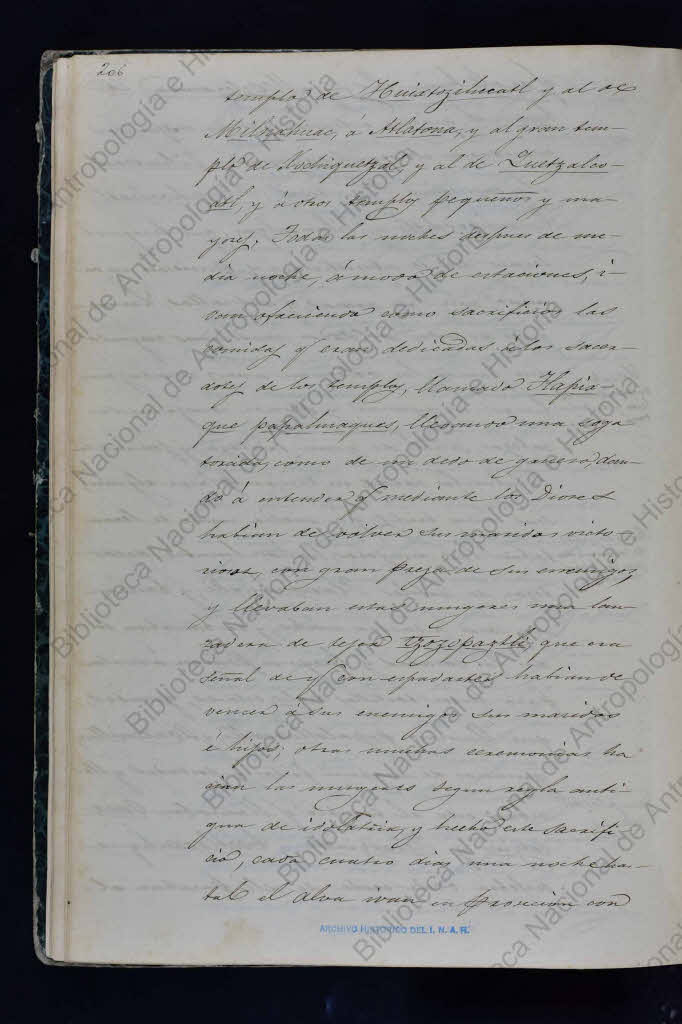 206
templo de Huistozihuatl y al de
Milnahuac, á Atlatona, y al gran tem-
plo de Xochiquetzal, y al de Quetzalco-
atl, y á otros templos pequeños y ma-
yores. Todas las noches despues de me-
dia noche, á modo de estaciones, i-
van ofreciendo como sacrificio las
comidas q eran dedicadas á los sacer-
dotes de los templos, llamado Tlapix-
que papahuaques, llevando una soga
torcida, como de un dedo de grueso, dan-
do á entender q mediante los Dioses
habian de volver sus maridos victo-
riosos, con gran presa de sus enemigos,
y llevaban estas mugeres una lan-
zadera de tejer tzotzopaztli que era
señal de q con espadartes habian de
vencer á sus enemigos sus maridos
é hijos; otras muchas ceremonias ha
cian las mugeres segun regla anti-
gua de idolatria, y hecho este sacrifi-
cio, cada cuatro dias, una noche has-
ta el Alva ivan en procecion con
ARCHIVO HISTORICO DEL I. N. A. H.
Biblioteca Nacional de Antropología e Historia